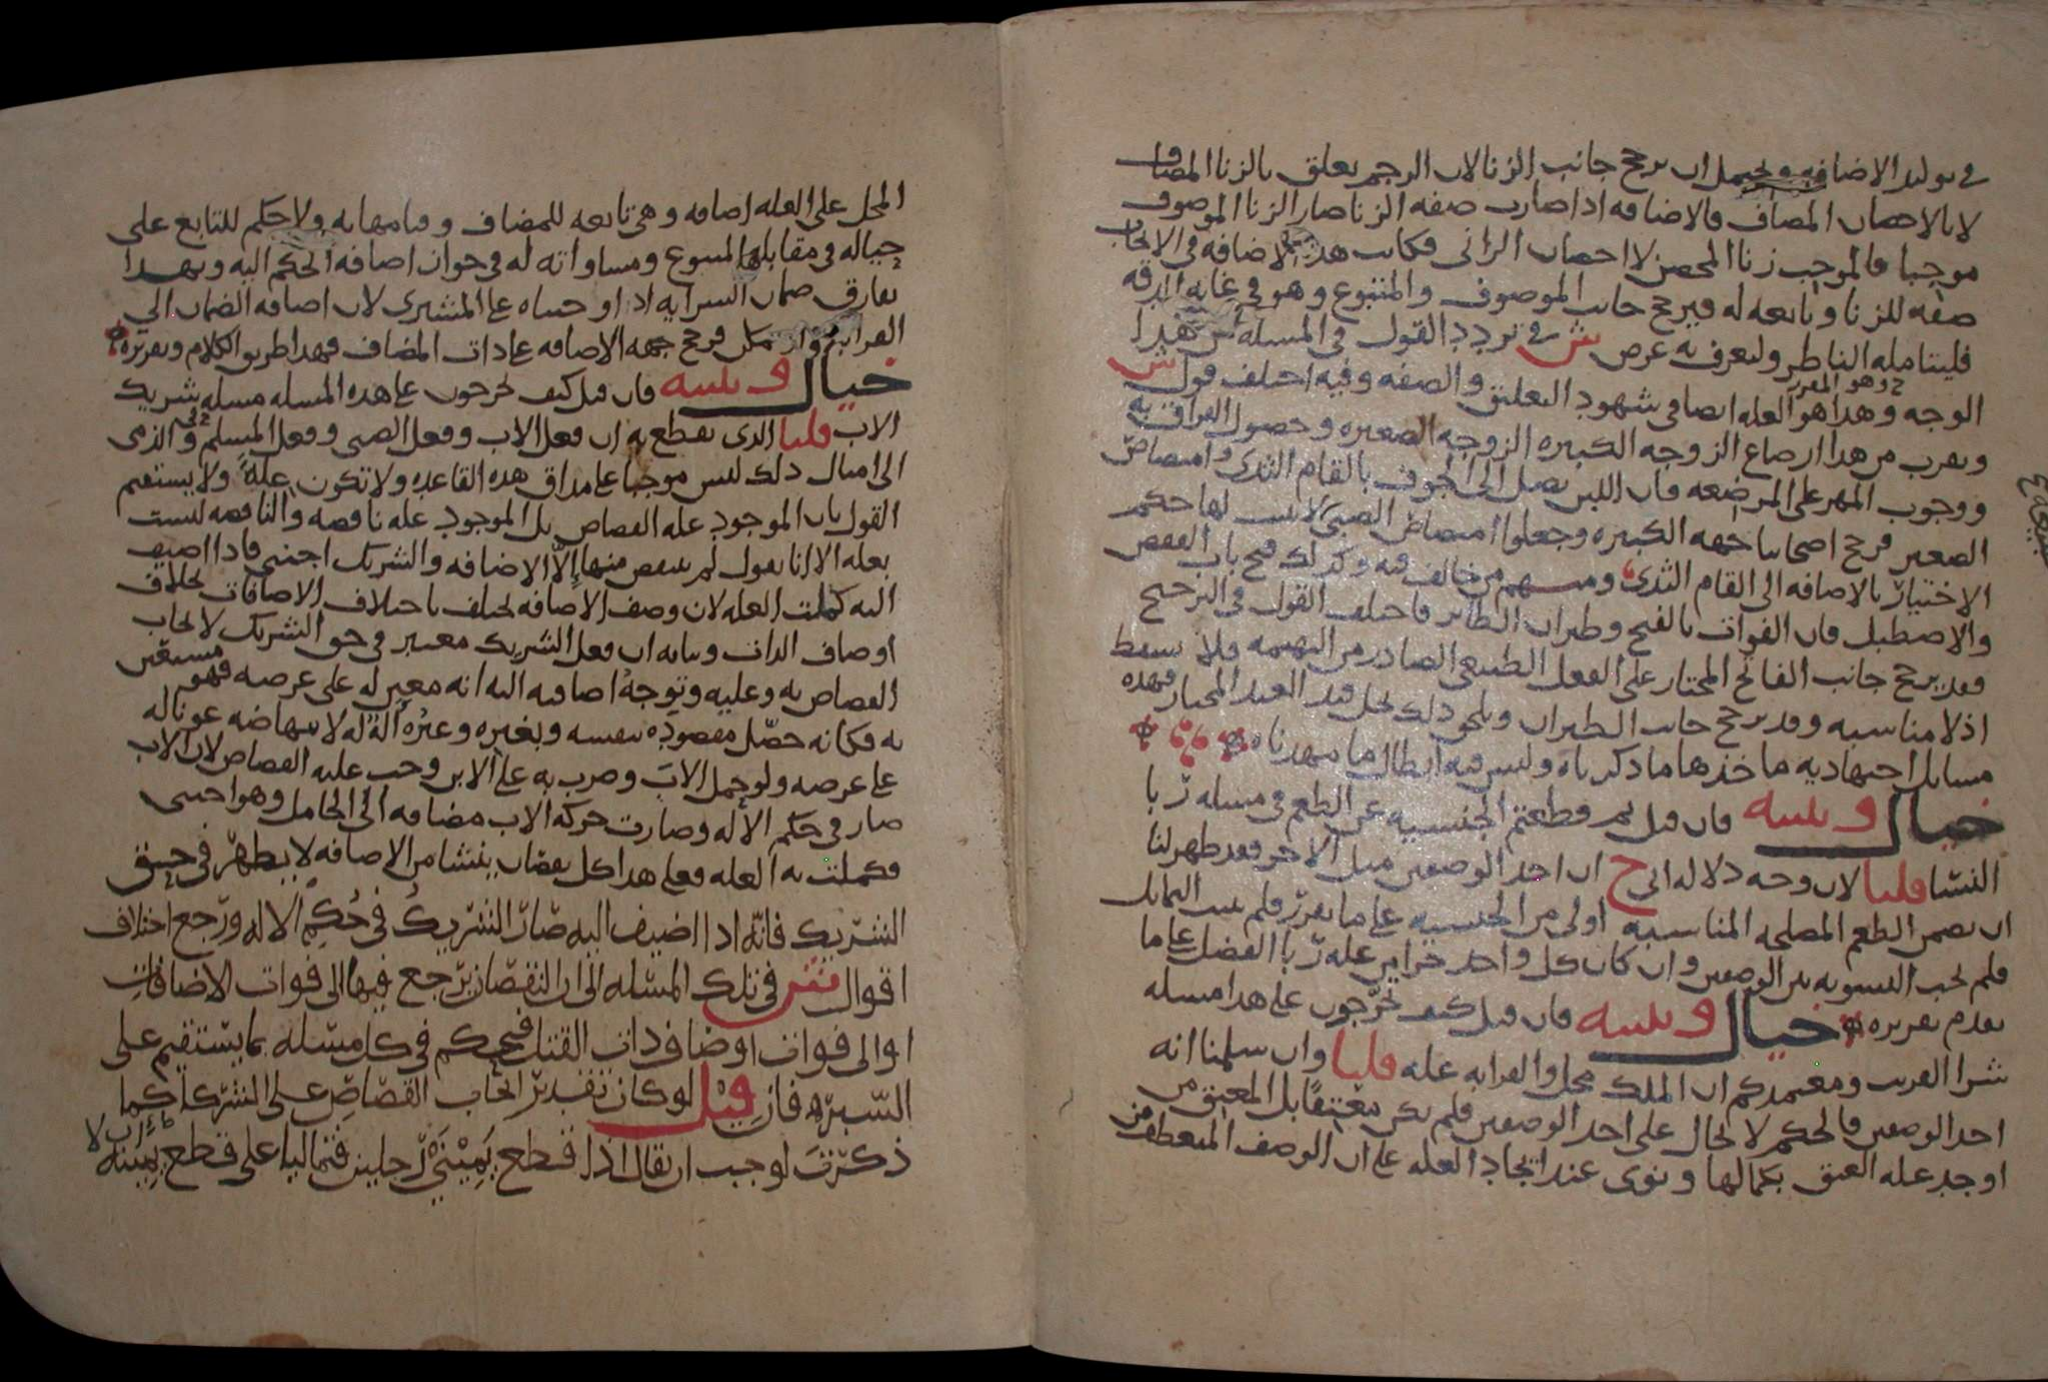 في تولد الاضافه ويحتمل ان يرجح جانب الزنا لان الرجم يعلق بالزنا المضاف
لا بالاحصان المضاف فالاضافه اذا صارت صفه الزنا صار الزنا الموصوف
موجبا فالموجب زنا المحصن لا احصان الزاني فكانت هذه الاضافه في الايجاب
صفه للزنا وتابعه له فيرجح جانب الموصوف والمتبوع وهو في غايه الدقه
فليتامله الناظر وليعرف به عرض ش في تردد القول في المسله
الوجه وهذا هو العله ايضا في شهود التعليق والصفه وفيه اختلف قول ش
ويقرب من هذا ارضاع الزوجه الكبيره الزوجه الصغيره وحصول الفراق به
ووجوب المهر على المرضعه فان اللبن يصل الى الجوف بالقام الثدي وامتصاص
الصغير فرجح اصحابنا جهه الكبيره وجعلوا امتصاص الصبي لها حكم
الاختيار بالاضافه الى القام الثدي ومنهم من خالف فيه وكذلك فتح باب القفص
والاصطبل فان الفوات بالفتح وطيران الطائر فاختلف القول في الترجيح
فقد يرجح جانب الفاتح المختار على الفعل الطبيعي الصادر من البهيمه فلا يسقط
اذ لا مناسبه وقد يرجح جانب الطيران ويلحق ذلك بحل قيد العبد المختار فهذه
مسايل اجتهاديه ماخذها ما ذكرناه وليس فيه ابطال ما مهدناه
خيال وتنبيه فان قيل لم قطعتم الجنسيه عن الطعم في مسله ربا
النسا قلنا لان وجه دلاله ان احد الوصفين مثل الاخر فقد ظهر لنا
ان تضمن الطعم المصلحه المناسبه اولى من الجنسيه على ما تقرر فلم يثبت التماثل
فلم تجب التسويه بين الوصفين وان كان كل واحد جزا من عله ربا الفضل على ما
تقدم تقريره خيال وتنبيه فان قيل كيف تخرجون على هذا مسله
شرا القريب ومعتمدكم ان الملك محل والقرابه عله قلنا وان سلمنا انه
احد الوصفين فالحكم لا يحال على احد الوصفين فلم يكن معتقا بل المعتق من
اوجد عله العتق بكمالها ونوى عند ايجاد العله على ان الوصف المنعطف من
المحل على العله اضافه وهي تابعه للمضاف وقيامها به ولا حكم للتابع على
حياله في مقابله المتبوع ومساواته له في جواز اضافه الحكم اليه وبهذا
يفارق ضمان السرايه اذ اوجبناه على المشتري لان اضافه الضمان الى
القرابه فرجح جهه الاضافه على ذات المضاف فهذا طريق الكلام وتقريره
خيال وتنبيه فان قيل كيف تخرجون على هذه المسله مسله شريك
الاب قلنا الذي نقطع به ان فعل الاب وفعل الصبي وفعل المسلم والذمي
الى امثال ذلك ليس موجبا على مذاق هذه القاعده ولا تكون عله ولا يستقيم
القول بان الموجود عله القصاص بل الموجود عله ناقصه والناقصه ليست
بعله الا انا نقول لم ينقص منها الا الاضافه والشريك اجنبي فاذا اضيف
اليه كملت العله لان وصف الاضافه يختلف باختلاف الاضافات بخلاف
اوصاف الذات وبيانه ان فعل الشريك معتبر في حق الشريك لايجاب
القصاص به وعليه وتوجه اضافته اليه انه معين له على غرضه فهو مستعين
به فكانه حصل مقصوده بنفسه وبغيره وغيره اله له لانتهاضه عونا له
على غرضه ولو حمل الاب وضرب به على الابن وجب عليه القصاص لان الاب
صار في حكم الاله وصارت حركه الاب مضافه الى الحامل وهو اجنبي
فكملت به العله فعلى هذا كل نقصان ينشا من الاضافه لا يظهر في حق
الشريك فانه اذا اضيف اليه صار الشريك في حكم الاله ورجع اختلاف
اقوال ش في تلك المسله الى ان النقصان يرجع فيها الى فوات الاضافات
او الى فوات اوصاف ذات القتل فيحكم في كل مسله بما يستقيم على
السبر فان قيل لو كان تقدير ايجاب القصاص على الشركا كما
ذكرت لوجب ان يقال اذا قطع يميني رجلين فتماليا على قطع يمينه